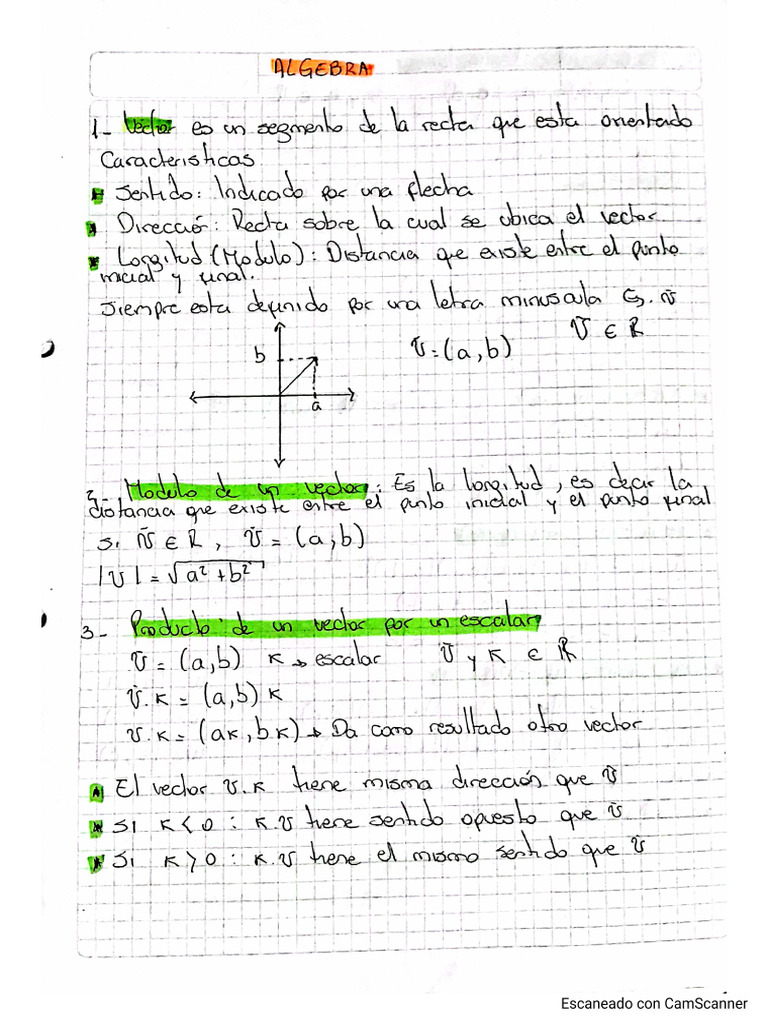 ALGEBRA
1- Vector es un segmento de la recta que esta orientado
Caracteristicas
Sentido: Indicado por una flecha
Dirección: Recta sobre la cual se ubica el vector
Longitud (Modulo): Distancia que existe entre el punto
inicial y final.
Siempre esta definido por una letra minuscula Ej. v̄
v̄ ∈ R
b
v̄=(a,b)
a
2- Modulo de un vector: Es la longitud, es decir la
distancia que existe entre el punto inicial y el punto final
Si v̄ ∈ R, v̄ = (a,b)
|v| = √a² + b²
3- Producto de un vector por un escalar
v̄ = (a,b) K → escalar v̄ y K ∈ R
v̄.K = (a,b) K
v.K = (aK, bK) → Da como resultado otro vector
El vector v.K tiene misma dirección que v̄
Si K < 0 : K.v tiene sentido opuesto que v̄
Si K > 0 : K.v tiene el mismo sentido que v̄
Escaneado con CamScanner